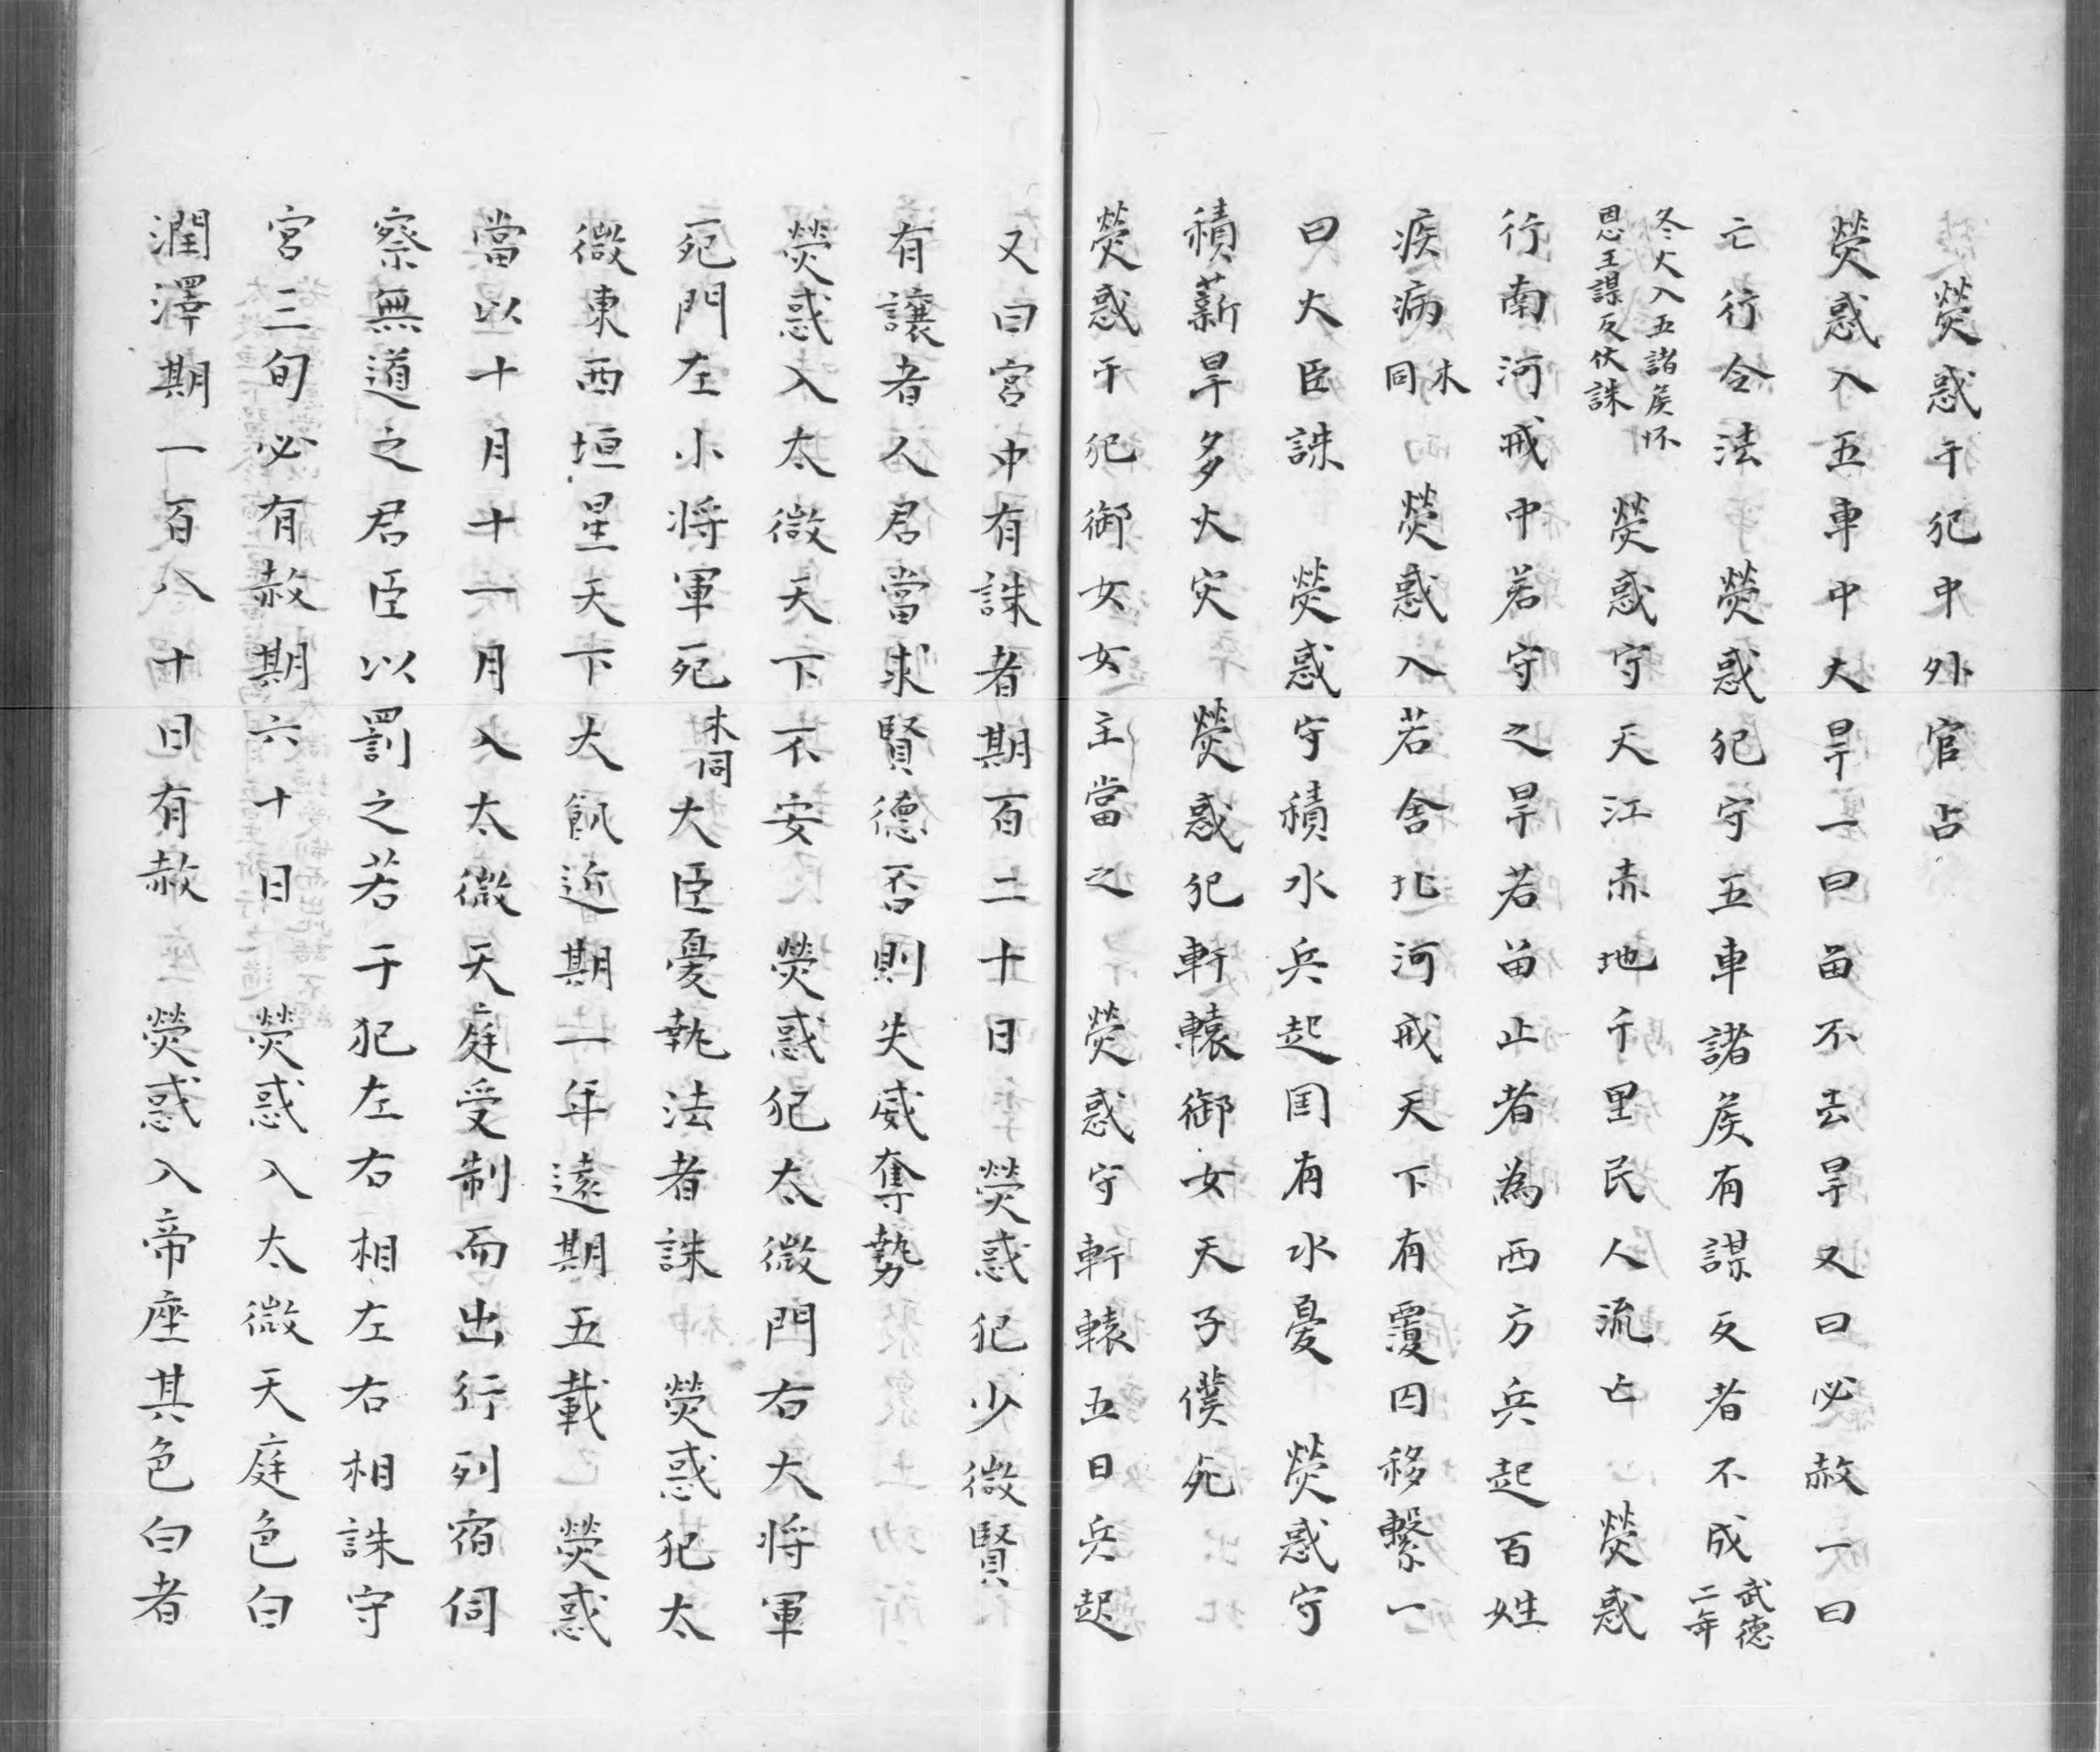 熒惑干犯中外官占
熒惑入五車中大旱一曰留不去旱又曰必赦一曰
亡行令法　熒惑犯守五車諸矦有謀反者不成武德二年
冬火入五諸矦怀恩王謀反伏誅　熒惑守天江赤地千里民人流亡　熒惑
行南河戒中若守之旱若留止者為西方兵起百姓
疾病木同　熒惑入若舍北河戒天下有覆囚移繫一
曰大臣誅　熒惑守積水兵起国有水憂　熒惑守
積薪旱多火灾　熒惑犯軒轅御女天子僕死
熒惑干犯御女女主當之　熒惑守軒轅五日兵起
又曰宮中有誅者期百二十日　熒惑犯少微賢
有讓者人君當求賢德否則失威奪勢
熒惑入太微天下不安　熒惑犯太微門右大将軍
死門左小将軍死木同大臣憂執法者誅　熒惑犯太
微東西垣星天下大飢近期一年遠期五載　熒惑
當以十月十一月入太微天庭受制而出行列宿伺
察無道之君臣以罰之若于犯左右相左右相誅守
宮三旬必有赦期六十日　熒惑入太微天庭色白
潤澤期一百八十日有赦　熒惑入帝座其色白者